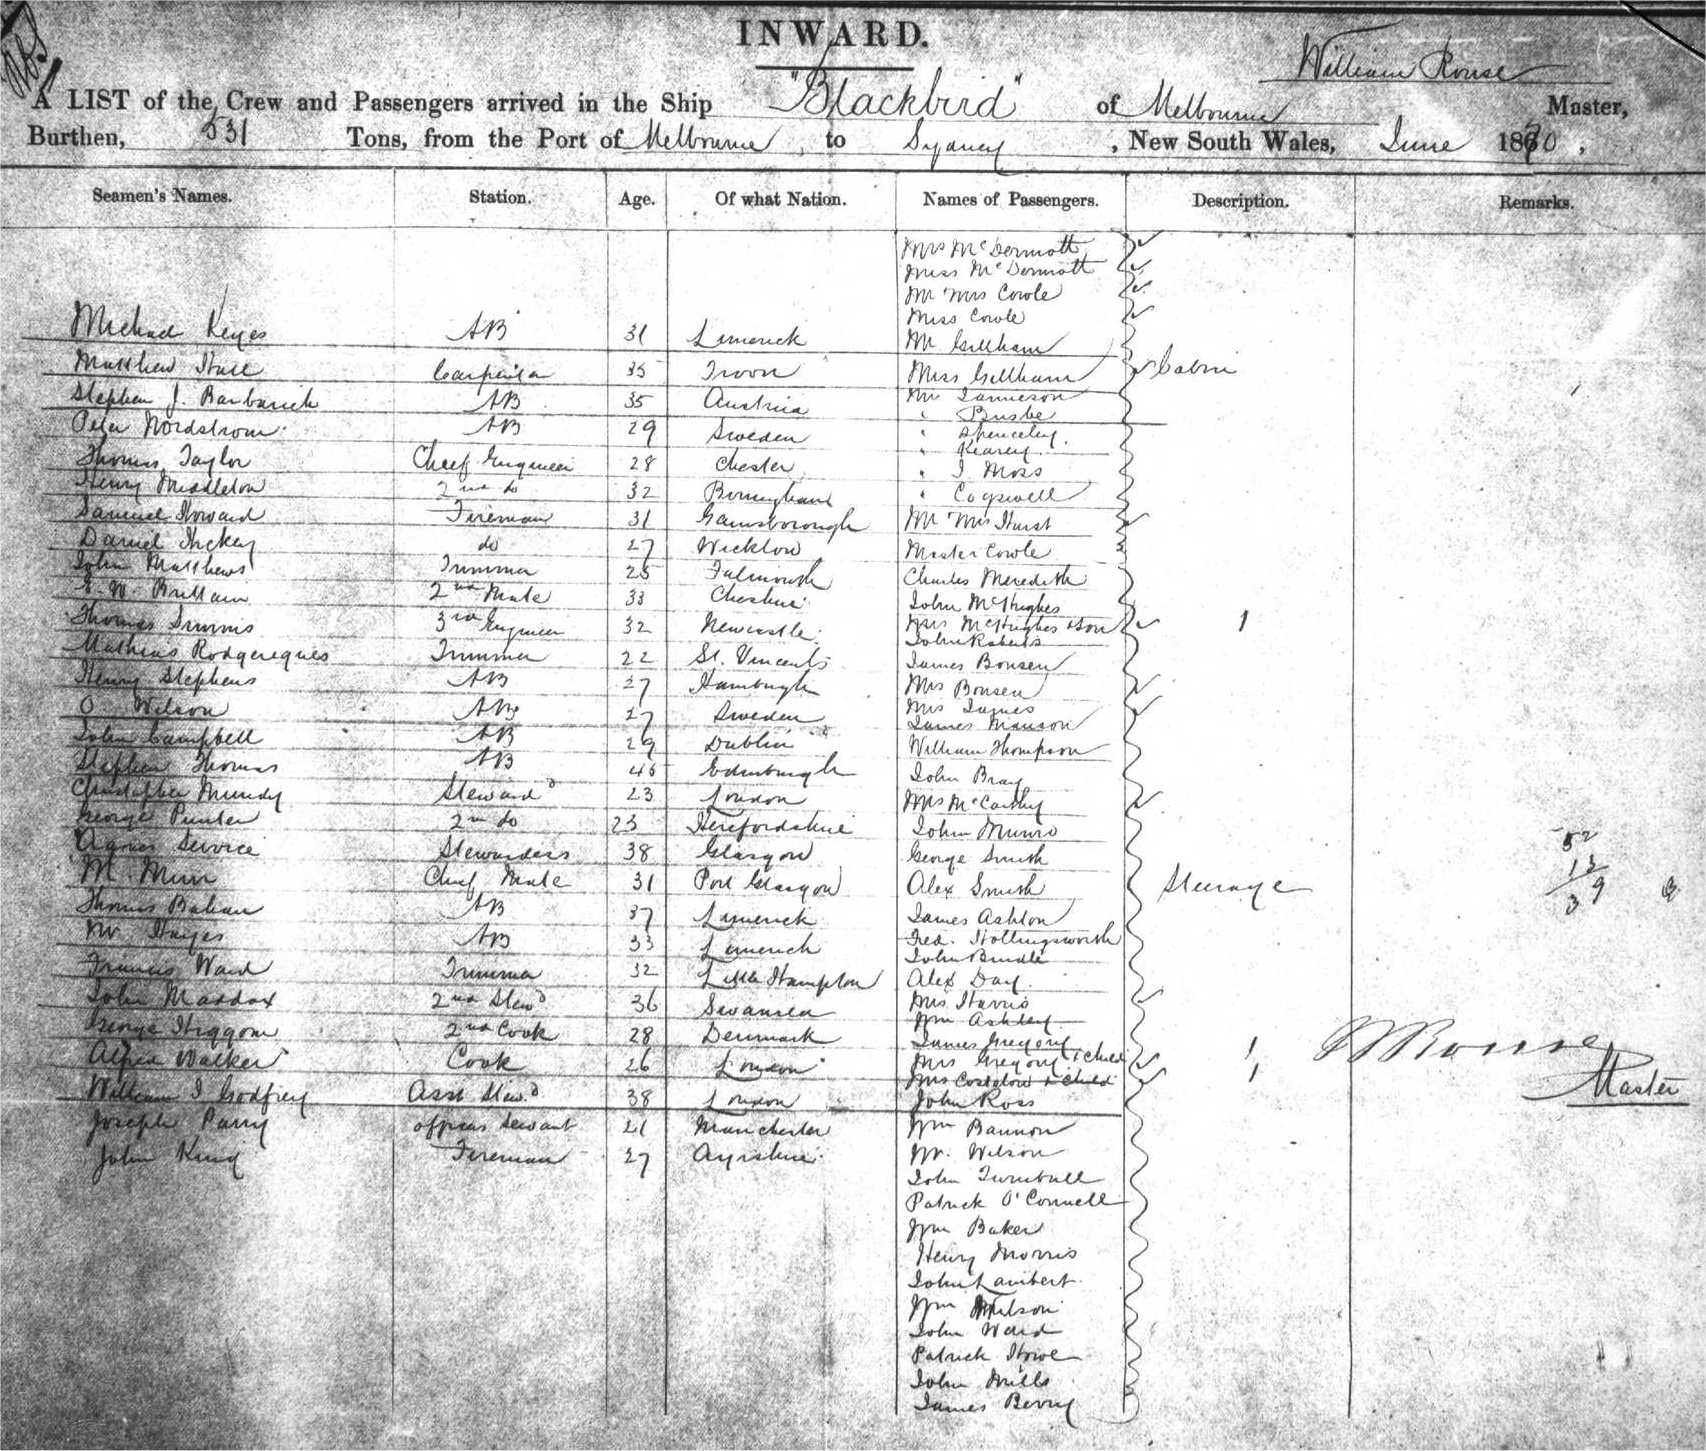 INWARD.
William Rouse
A LIST of the Crew and Passengers arrived in the Ship "Blackbird" of Melbourne Master,
Burthen, 531 Tons, from the Port of Melbourne, to Sydney, New South Wales, June 1870,
Seamen's Names. Station. Age. Of what Nation. Names of Passengers. Description. Remarks.
Mrs McDermott
Miss McDermott
Mr Mrs Cowle
Miss Cowle
Michael Keyes AB 31 Limerick Mr Gillham
Matthew Carpenter 35 Troon Miss Gillham Cabin
Stephen J. Barbarich AB 35 Austria Mr Jamieson
" Busbe
Peter Nordstrom AB 29 Sweden " Spenceley
" Kearey
Thomas Taylor Chief Engineer 28 Chester " J. Moss
Henry Middleton 2nd do 32 Birmingham " Cogswell
Samuel Howard Fireman 31 Gainsborough Mr Mrs Hurst
Daniel Hickey do 27 Wicklow Master Cowle
John Matthews Trimmer 25 Falmouth Charles Meredith
W. Brittain 2nd Mate 33 Cheshire John McHughes
Thomas Simms 3rd Engineer 32 Newcastle Mrs McHughes & Son 1
John Roberts
Mathias Rodgereques Trimmer 22 St. Vincents James Bonsen
Henry Stephens AB 27 Hamburgh Mrs Bonsen
O. Wilson AB 27 Sweden Mrs James
James Manson
John Campbell AB 29 Dublin William Thompson
Stephen Thomas AB 45 Edinburgh John Bray
Christopher Mundy Steward 23 London Mrs McCarthy
George Punter 2nd do 23 Herefordshire John Munro 52
Agnes Service Stewardess 38 Glasgow George Smith 13
M. Muir Chief Mate 31 Port Glasgow Alex Smith Steerage 39
Thomas AB 37 Limerick James Ashton
W. Hayes AB 33 Limerick Fred. Hollingsworth
John Brindle
Francis Ward Trimmer 32 Little Hampton Alex Day
John Maddox 2nd Stewd 36 Swansea Mrs Harris
Wm Ashley
George Higgom 2nd Cook 28 Denmark James Gregory
Alfred Walker Cook 26 London Mrs Gregory & Child 1 W Rouse
Mrs Costelow & Child 1 Master
William J Godfrey Asst Stewd 38 London John Ross
Joseph Parry officers servant 21 Manchester Wm Bannon
John King Fireman 27 Ayrshire W. Wilson
John Turnbull
Patrick O'Connell
Wm Baker
Henry Morris
John Lambert
Wm Wilson
John Ward
Patrick Howe
John Mills
James Berry